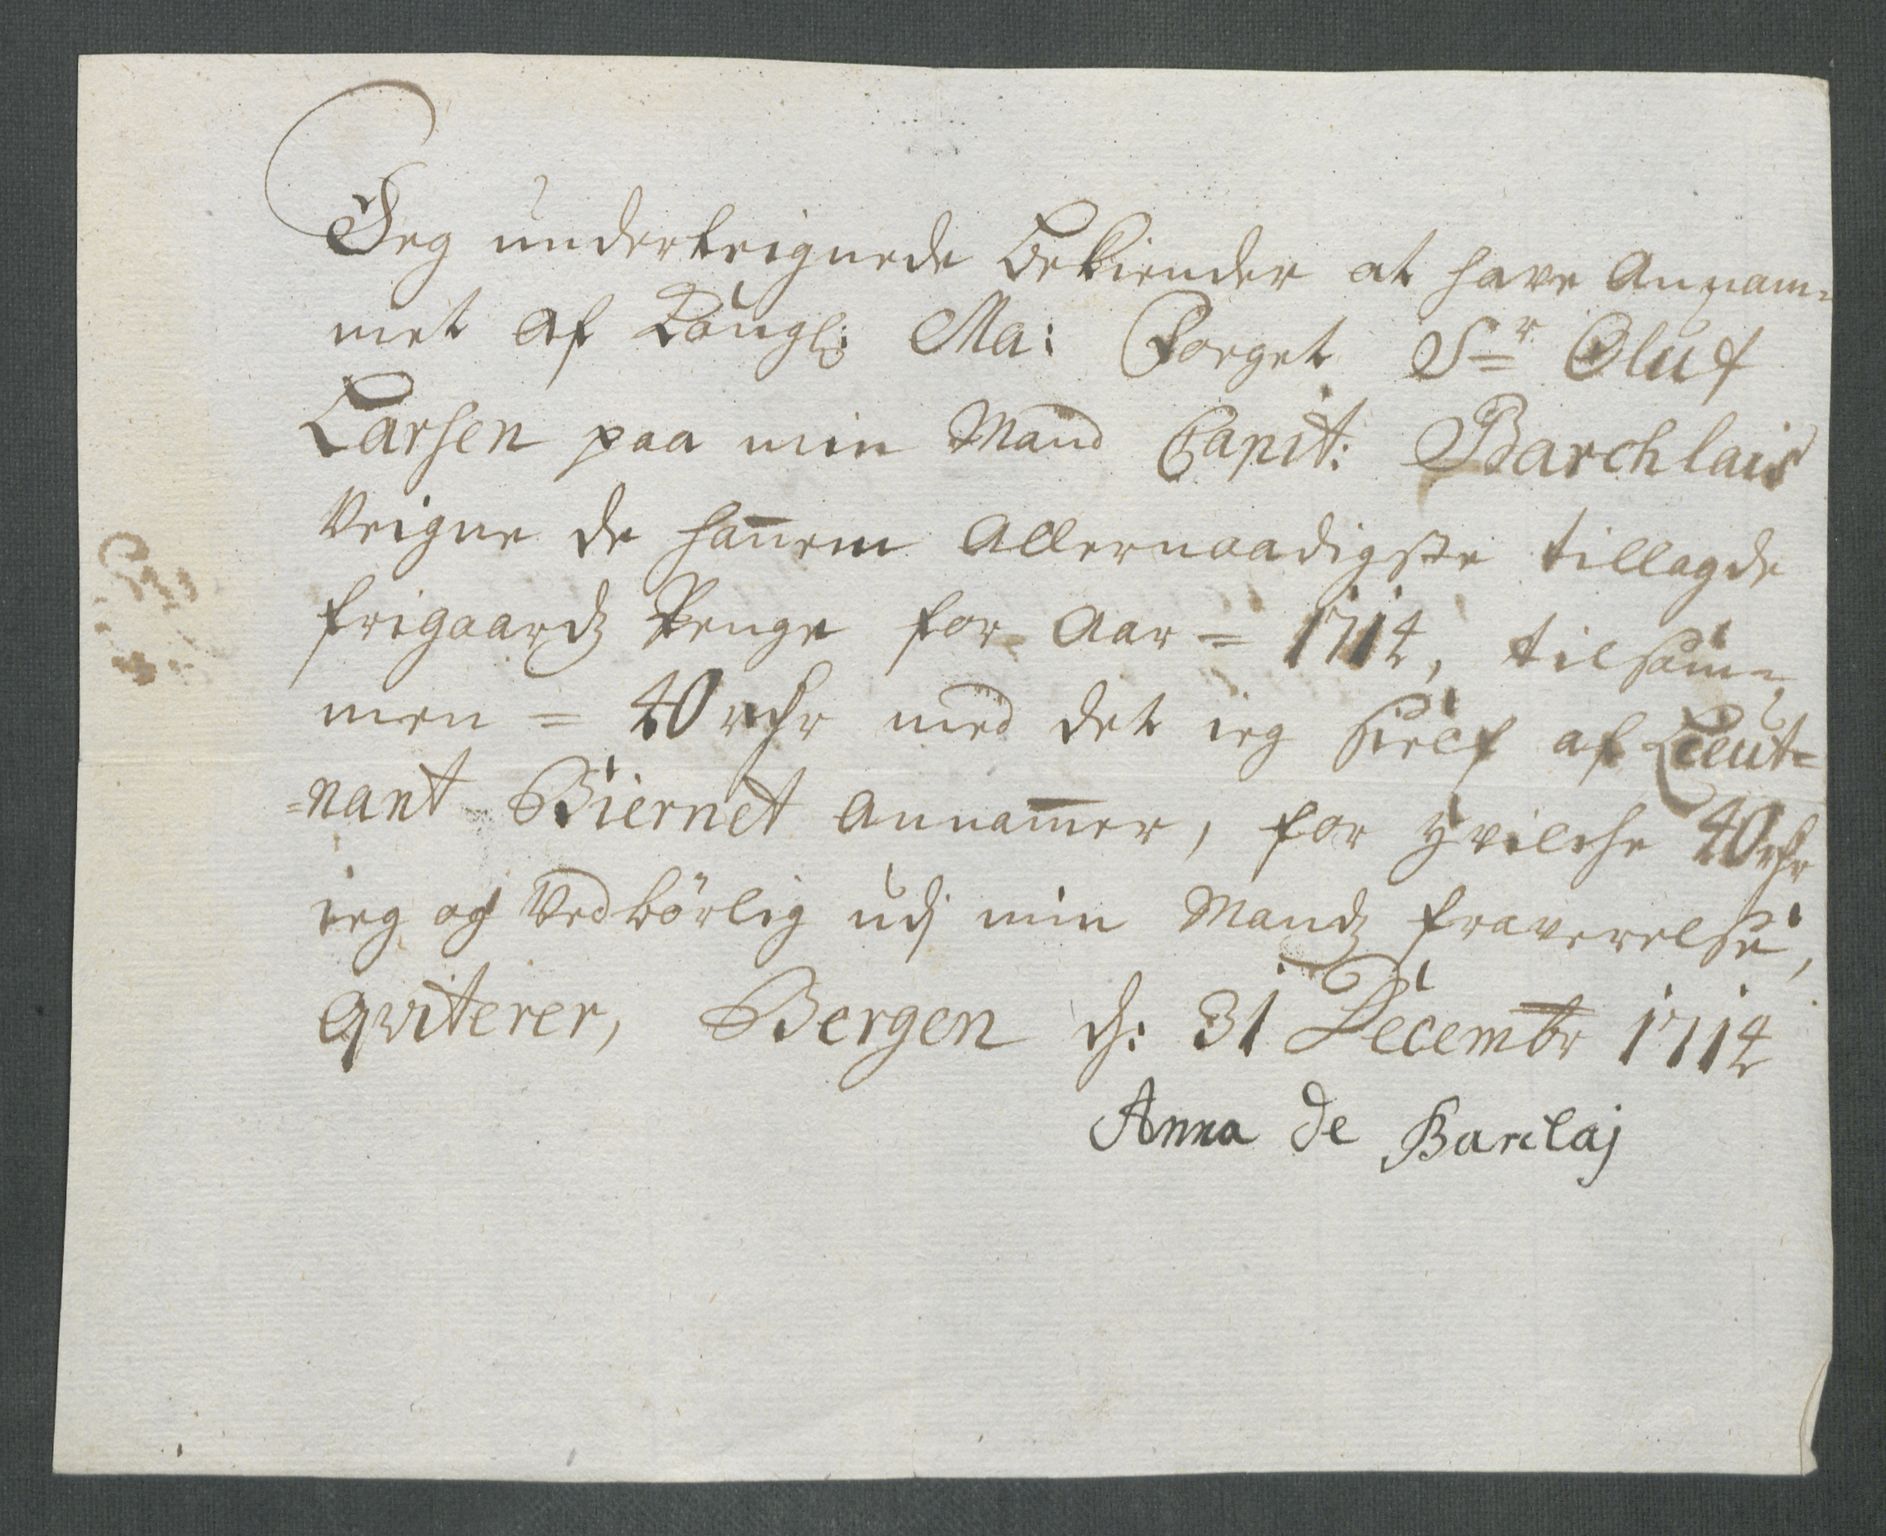 Jeg underteignede bekiender at have Annam=
met af Kongl: Ma: Foeget Sr Oluf
Larsen paa min Mand Capit: Barchlais
Veigne de hannem Allernaadigste tillagde
frigaardz Penge for Aar = 1714, tilsam=
men = 40 rdr med det ieg sielf af Lieut=
=nant Biernet annammer, for hvilche 40 rdr
ieg og Vedbörlig udj min Mandz fraverelse,
qviterer, Bergen d: 31 Decembr 1714
Anna de Barclaj